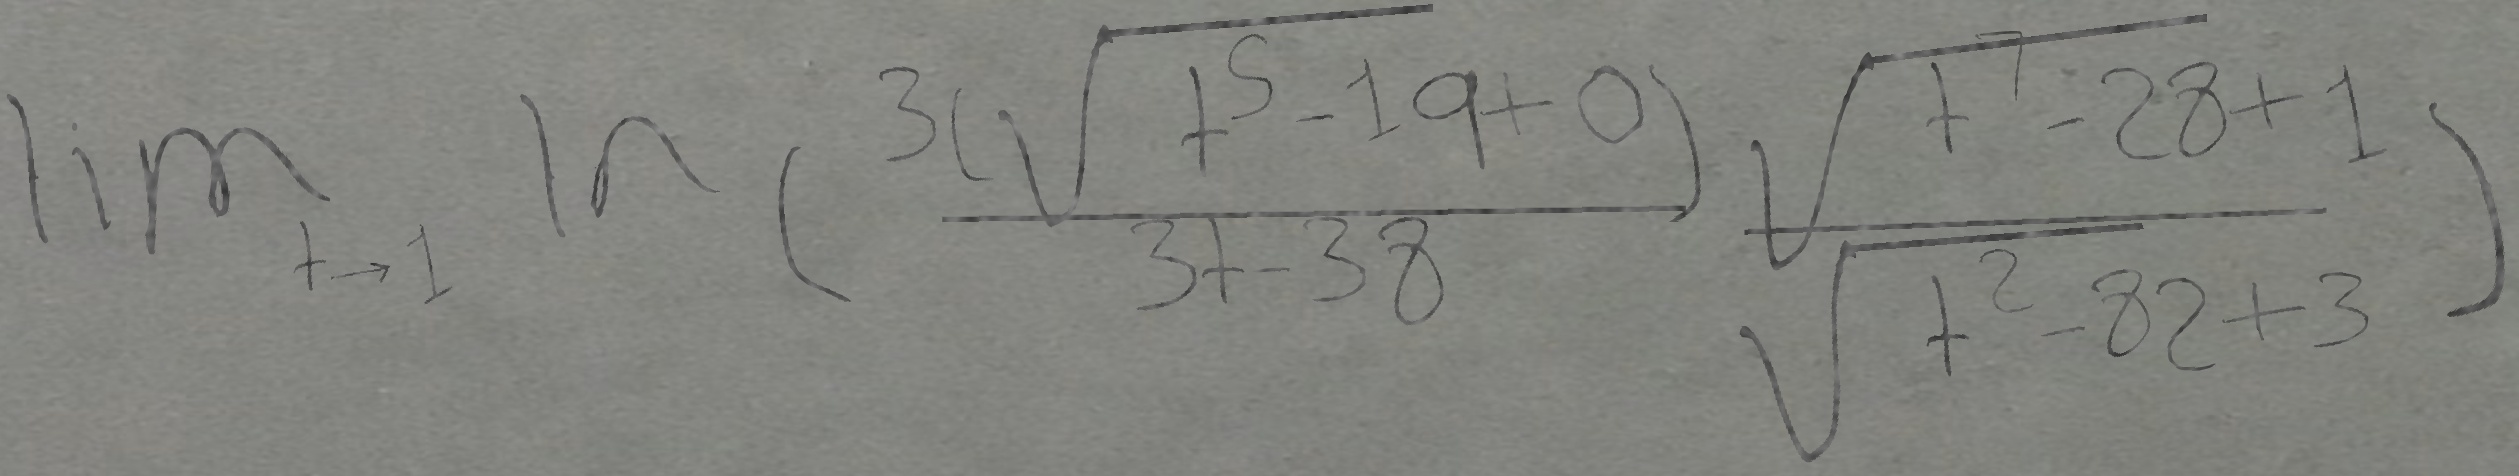 $\lim_{t \to 1} \ln \left( \frac{3(\sqrt{t^5 - 19 + 0})}{3t - 38} \frac{\sqrt{t^7 - 28 + 1}}{\sqrt{t^2 - 82 + 3}} \right)$